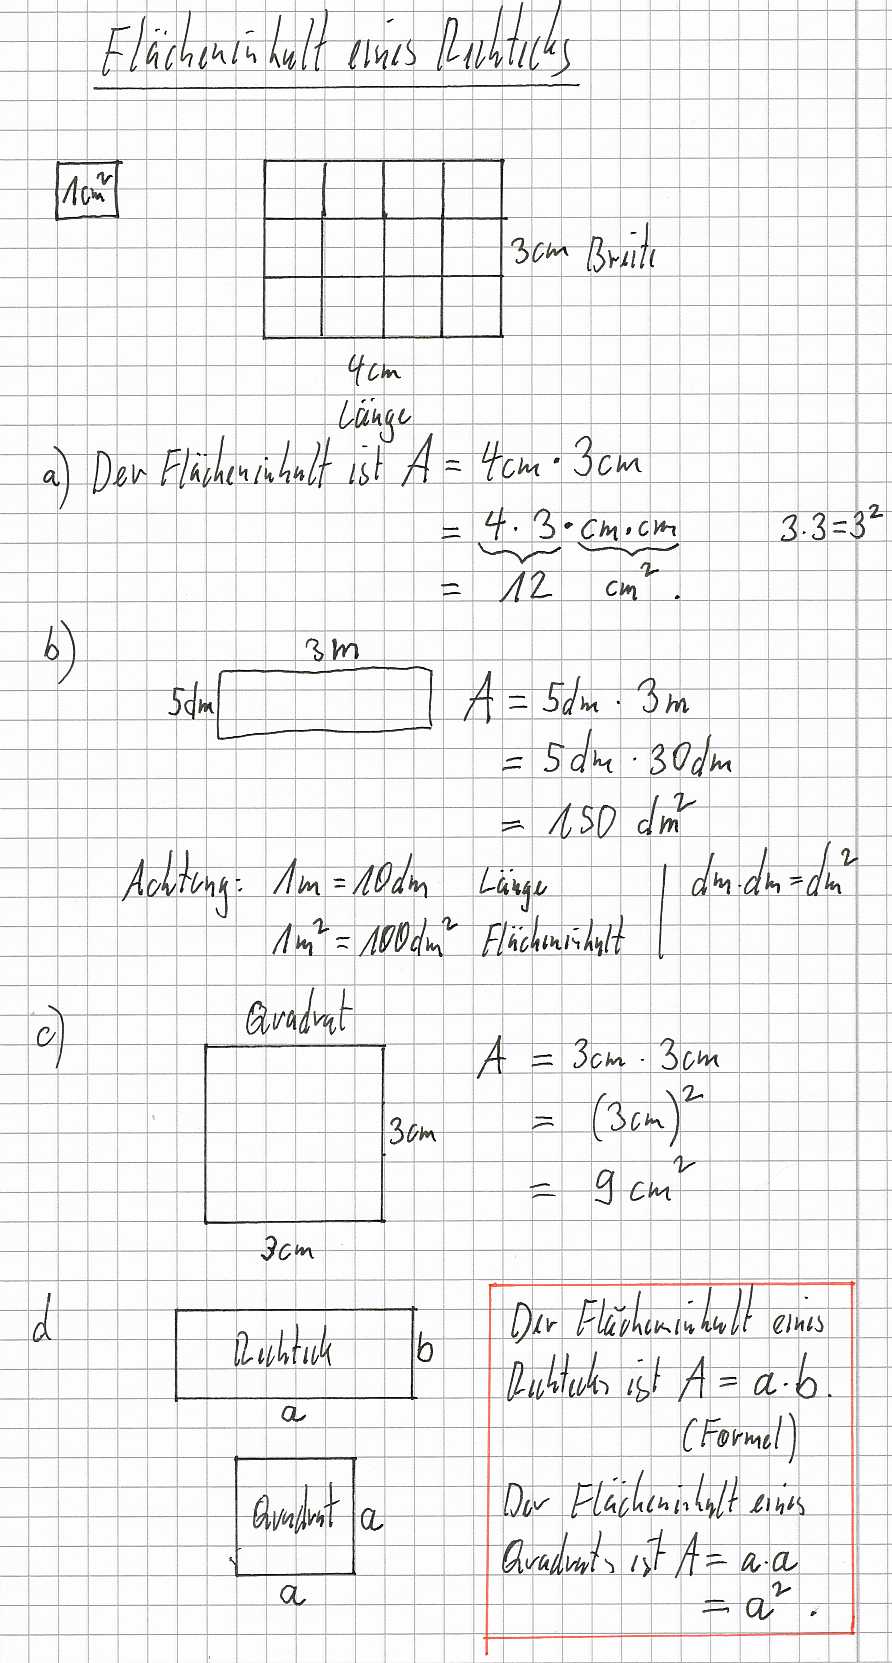 Flächeninhalt eines Rechtecks
1cm²
3cm Breite
4cm
Länge
a) Der Flächeninhalt ist A = 4cm · 3cm
= 4 · 3 · cm · cm 3·3=3²
= 12 cm².
b) 3m
5dm A = 5dm · 3m
= 5dm · 30dm
= 150 dm²
Achtung: 1m = 10dm Länge | dm·dm = dm²
1m² = 100dm² Flächeninhalt
c) Quadrat
A = 3cm · 3cm
3cm = (3cm)²
= 9 cm²
3cm
d
Rechteck b
a
Quadrat a
a
Der Flächeninhalt eines
Rechtecks ist A = a·b.
(Formel)
Der Flächeninhalt eines
Quadrats ist A = a·a
= a².